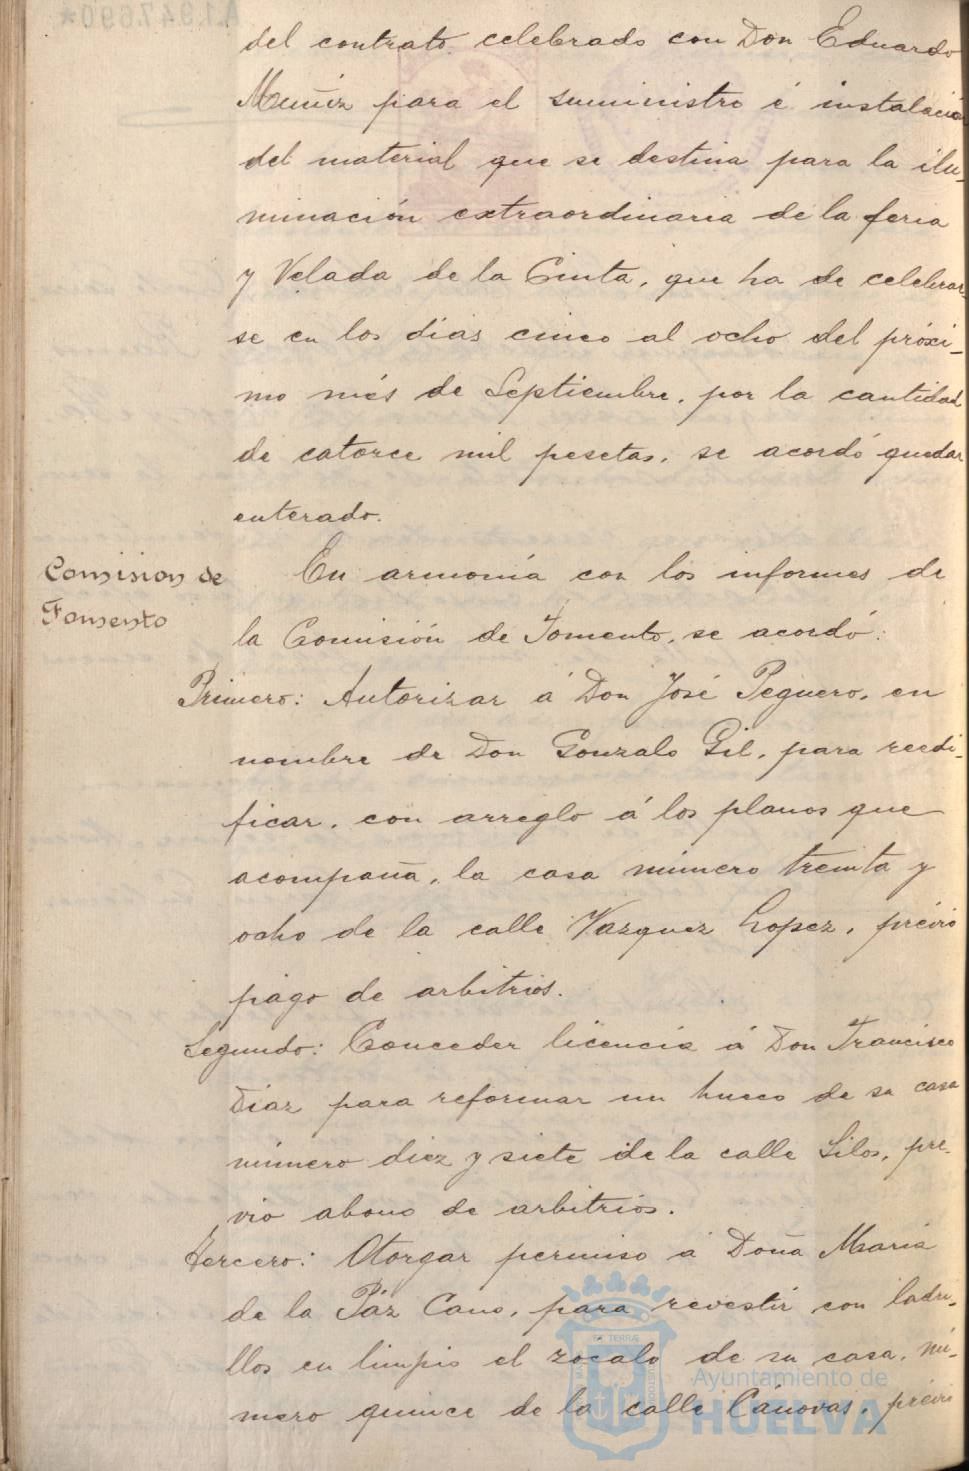 del contrato celebrado con Don Eduardo
Muñiz para el suministro é instalación
del material que se destina para la ilu-
minación extraordinaria de la feria
y Velada de la Cinta, que ha de celebrar-
se en los dias cinco al ocho del próxi-
mo més de Septiembre, por la cantidad
de catorce mil pesetas, se acordó quedar
enterado.
Comision de
Fomento
En armonía con los informes de
la Comisión de Fomento, se acordó:
Primero: Autorizar á Don José Peguero, en
nombre de Don Gonzalo Gil, para reedi-
ficar, con arreglo á los planos que
acompaña, la casa número treinta y
ocho de la calle Vazquez Lopez, prévio
pago de arbitrios.
Segundo: Conceder licencia á Don Francisco
Diaz para reformar un hueco de su casa
número diez y siete de la calle Silos, pre-
vio abono de arbitrios.
Tercero: Otorgar permiso á Doña María
de la Páz Cano, para revestir con ladri-
llos en limpio el zócalo de su casa, nú-
mero quince de la calle Cánovas, prévio
Ayuntamiento de
HUELVA